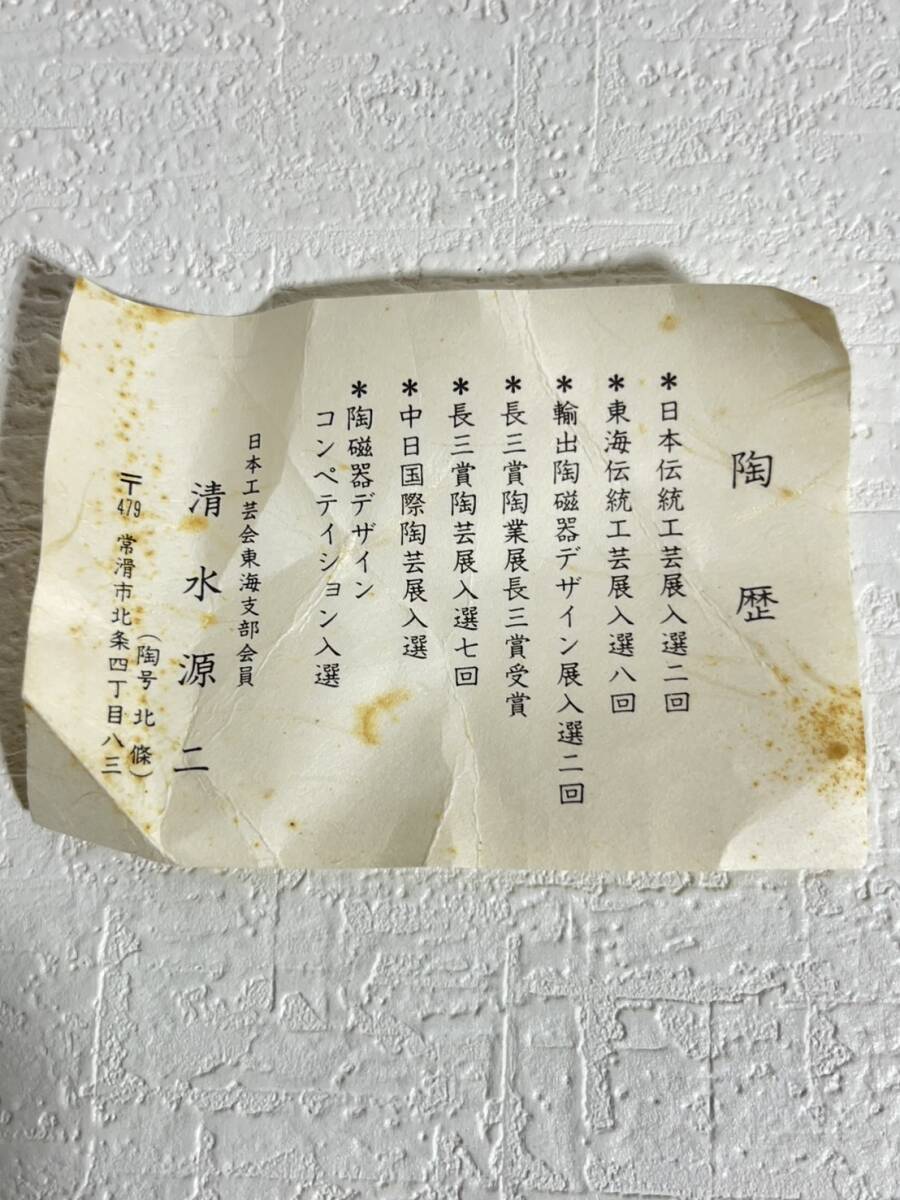 陶歴
＊日本伝統工芸展入選二回
＊東海伝統工芸展入選八回
＊輸出陶磁器デザイン展入選二回
＊長三賞陶業展長三賞受賞
＊長三賞陶芸展入選七回
＊中日国際陶芸展入選
＊陶磁器デザイン
コンペテイション入選
日本工芸会東海支部会員
清水源二
（陶号北條）
〒479 常滑市北条四丁目八三